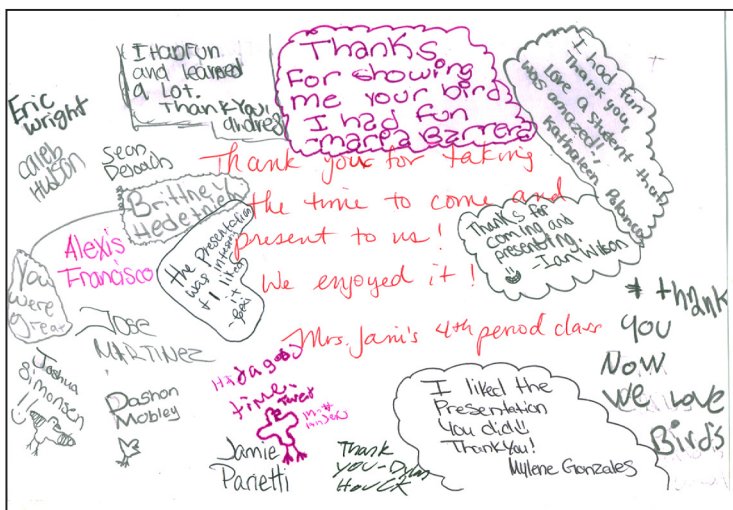 I Had Fun
and learned
a Lot.
Thank You,
andres
Thanks
For showing
me your bird
I had fun
-maria Barrera
I had fun
Thank you,
Love a student that
was amazed!!
Kathaleen Palomco
Eric
Wright
Caleb
Hudson
Sean
Brittney
Hedetniem
Thank you for taking
the time to come and
present to us!
We enjoyed it!
Mrs. Jani's 4th period class
Alexis
Francisco
The Presentation
was interest
& I liked
it
Thanks for
coming and
presenting.
-Ian Wilson
You
were
great
Jose
MARTINEZ
Joshua
Simonsen
Dashon
Mobley
Had a good
time.
Tweet
Jamie
Parietti
Thank
you-Dylan
Houck
I liked the
Presentation
You did!!
Thank You!
Mylene Gonzales
* thank
you
Now
we Love
Birds